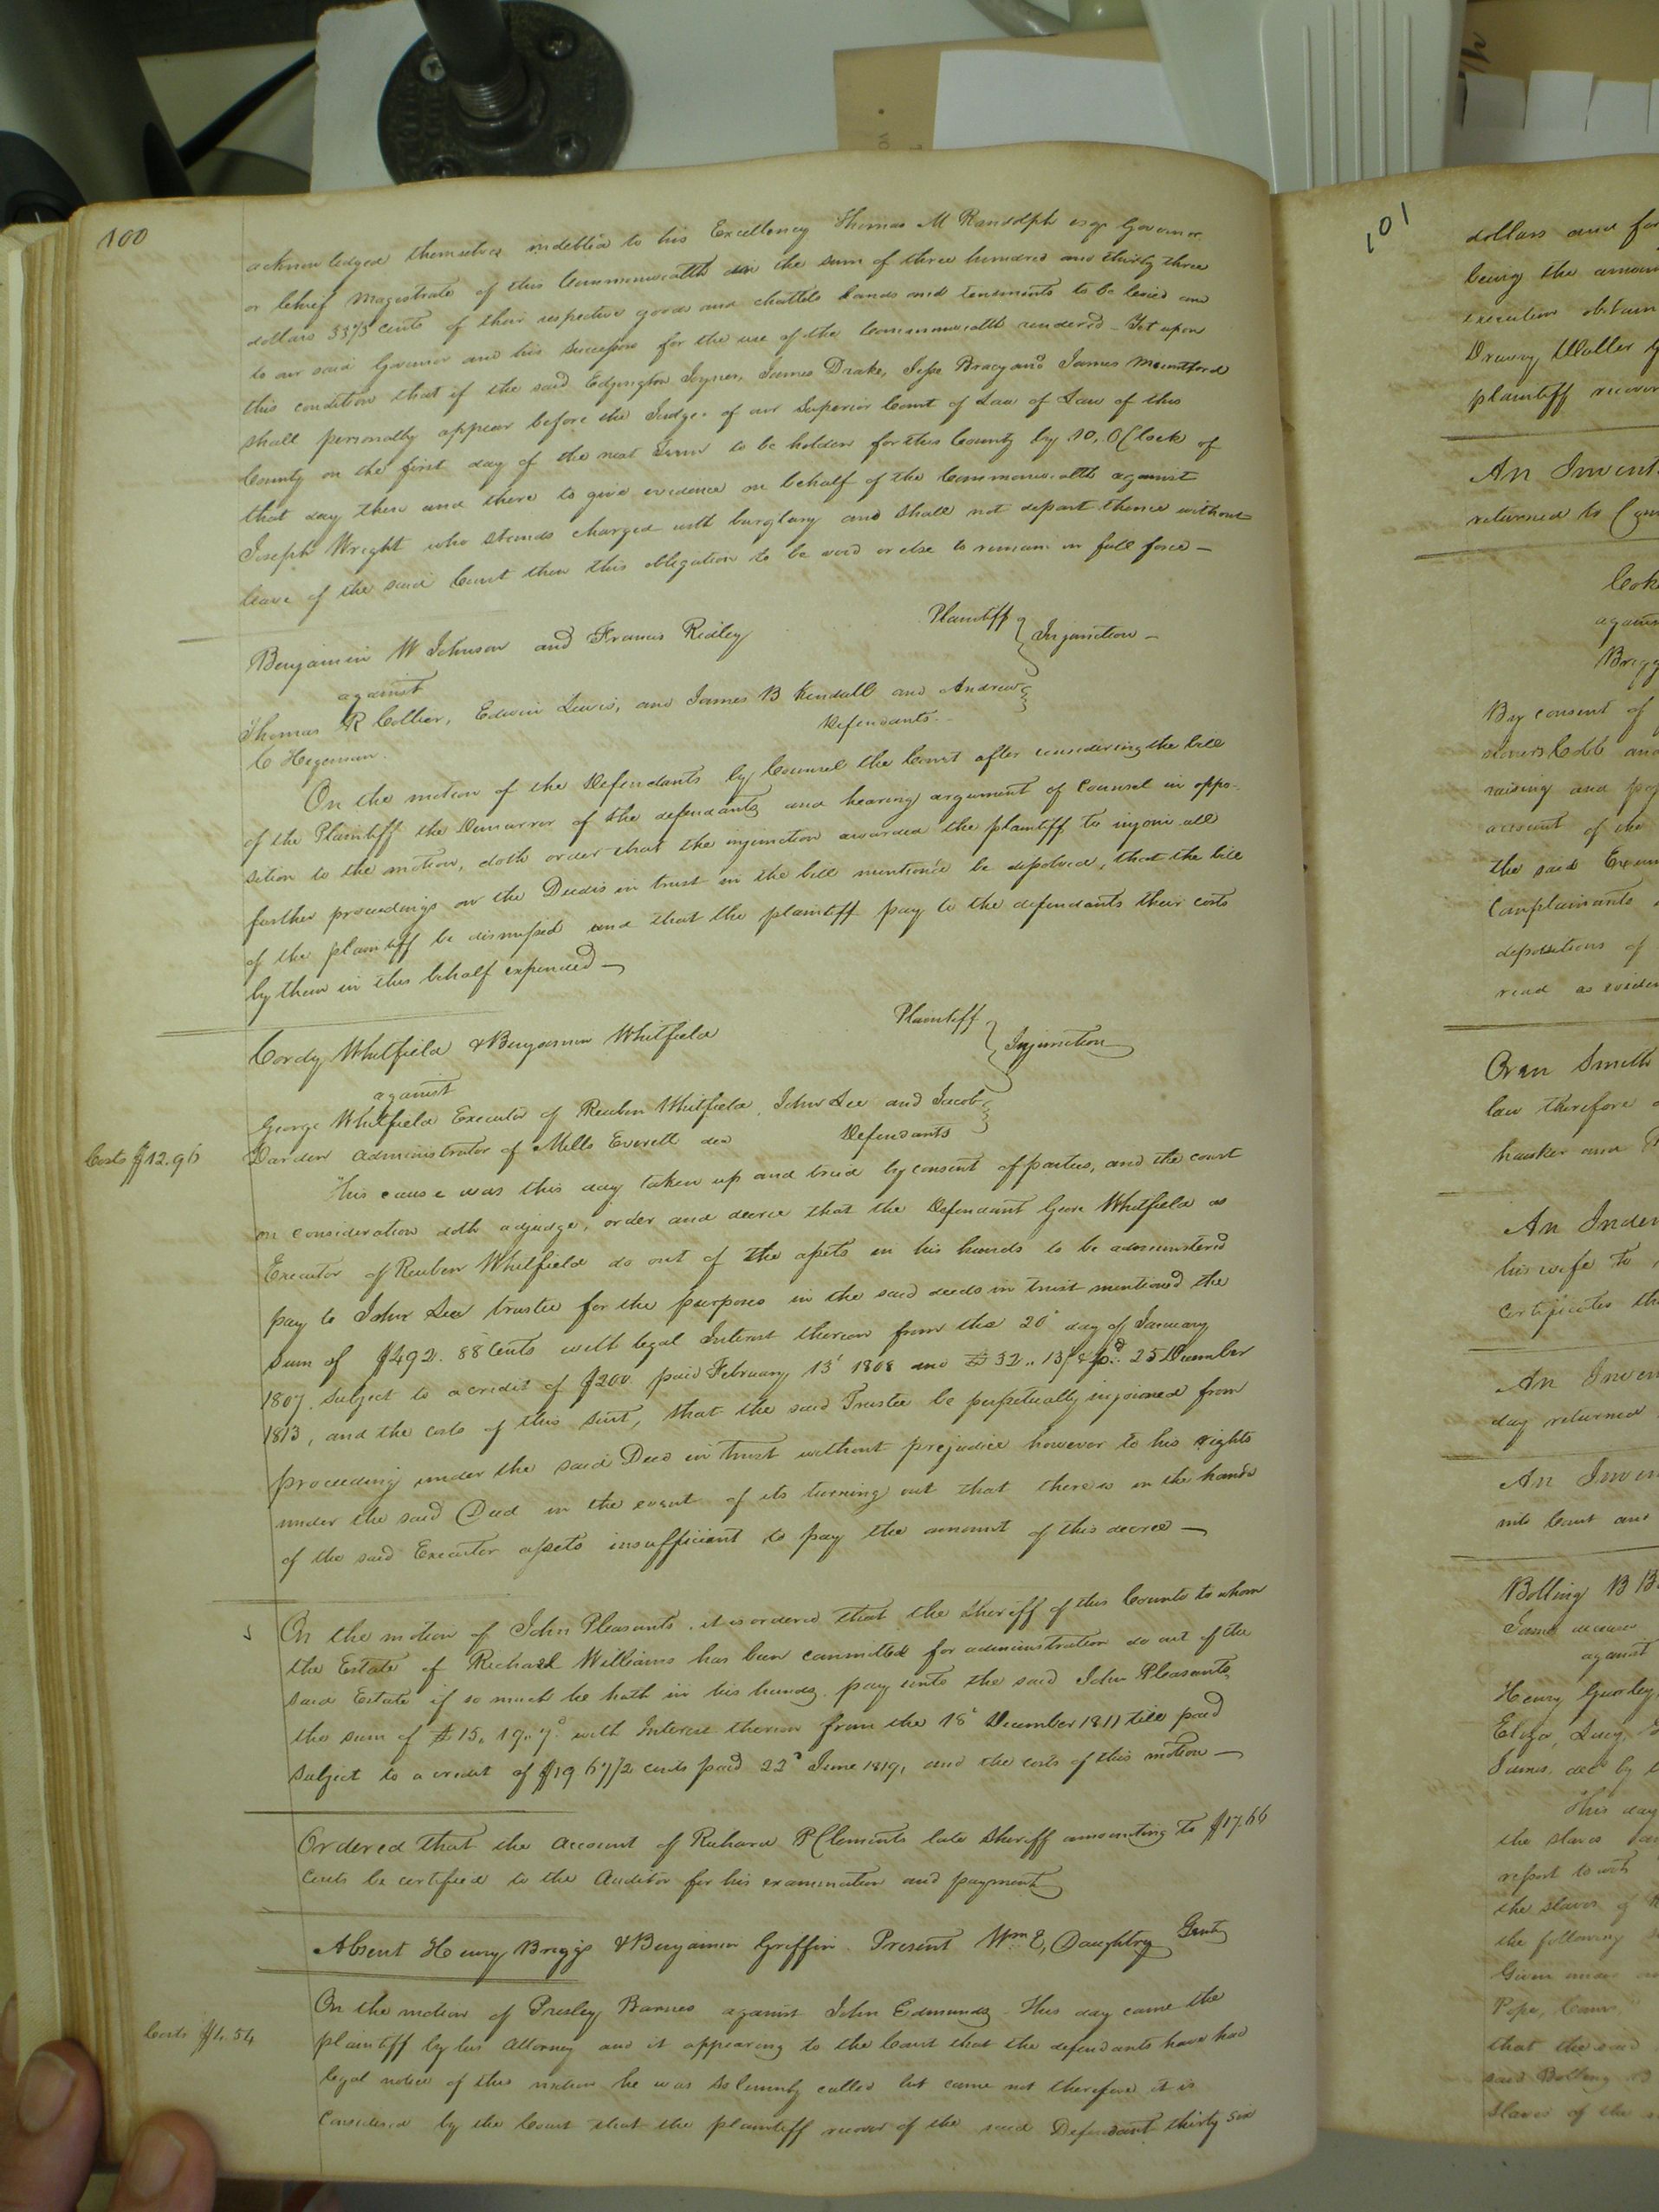 100
acknowledged themselves indebted to his Excellency Thomas M Randolph esqr Governor
or Chief Magistrate of this Commonwealth in the sum of three hundred and thirty three
dollars 33⅓ cents of their respective goods and chattels lands and tenements to be levied and
to our said Governor and his Successors for the use of the Commonwealth rendered - Yet upon
this condition that if the said Edgington Joyner, James Drake, Jesse Bracy and James Mountford
shall personally appear before the Judge of our Superior Court of Law of Law of this
County on the first day of the next Term to be holden for this County by 10, OClock of
that day then and there to give evidence on behalf of the Commonwealth against
Joseph Wright who stands charged with burglary and shall not depart thence without
leave of the said Court then this obligation to be void or else to remain in full force -
Benjamin W Johnson and Francis Ridley Plaintiff
against
Injunction -
Thomas R Collier, Edwin Lewis, and James B Kendall and Andrew
C Hegeman Defendants
On the motion of the Defendants by Counsel the Court after considering the bill
of the Plaintiff the Demurrer of the defendants and hearing argument of Counsel in oppo-
sition to the motion, doth order that the injunction awarded the plaintiff to injoin all
further proceedings on the Deeds in trust in the bill mentioned be dissolved, that the bill
of the plaintiff be dismissed and that the plaintiff pay to the defendants their costs
by them in this behalf expended -
Cordy Whitfield & Benjamin Whitfield Plaintiff
against
Injunction
George Whitfield Executor of Reuben Whitfield, John Lee and Jacob
Costs $12.96
Darden administrator of Mills Everett dec Defendants
This cause was this day taken up and tried by consent of parties, and the court
on consideration doth adjudge, order and decree that the Defendant Geore Whitfield as
Executor of Reuben Whitfield do out of the assets in his hands to be administered
pay to John Lee trustee for the purposes in the said deeds in trust mentioned the
sum of $492. 88 Cents with legal Interest thereon from the 20 day of January
1807, subject to a credit of $200 paid February 13 1808 and 25 December
1813, and the costs of this suit, that the said Trustee be perpetually injoined from
proceeding under the said Deed in trust without prejudice however to his rights
under the said Deed in the event of its turning out that there is in the hands
of the said Executor assets insufficient to pay the amount of this decree -
On the motion of John Pleasants, it is ordered that the Sheriff of this County to whom
the Estate of Richard Williams has been committed for administration do out of the
said Estate if so much he hath in his hands pay unto the said John Pleasants
the sum of £15, 19, 7 with Interest thereon from the 18 December 1811 till paid
subject to a credit of $19 67½ cents paid 22d June 1819, and the costs of this motion -
Ordered that the account of Richard P Clements late Sheriff amounting to $17.66
cents be certified to the Auditor for his examination and payment
Absent Henry Briggs & Benjamin Griffin. Present Wm E, Daughtry Gent
On the motion of Presley Barnes against John Edmunds - This day came the
Costs $4.54
plaintiff by his Attorney and it appearing to the Court that the defendants have had
legal notice of this motion he was solemnly called but came not therefore it is
Considered by the Court that the plaintiff recover of the said Defendant thirty six
101
dollars and
being the
execution
Drewry
plaintiff
An
returned to
By consent of
raising and
account of the
the said
Complainants
depositions of
read as
Oren Smith
law therefore
An
his wife to
Certificates
An
day returned
An
into Court and
Bolling B
Same
against
Henry Gurley
James, dec by
This day
the slaves
report to wit
the slaves of
the following
Given under
Pope,
that the said
said Bolling
slaves of the